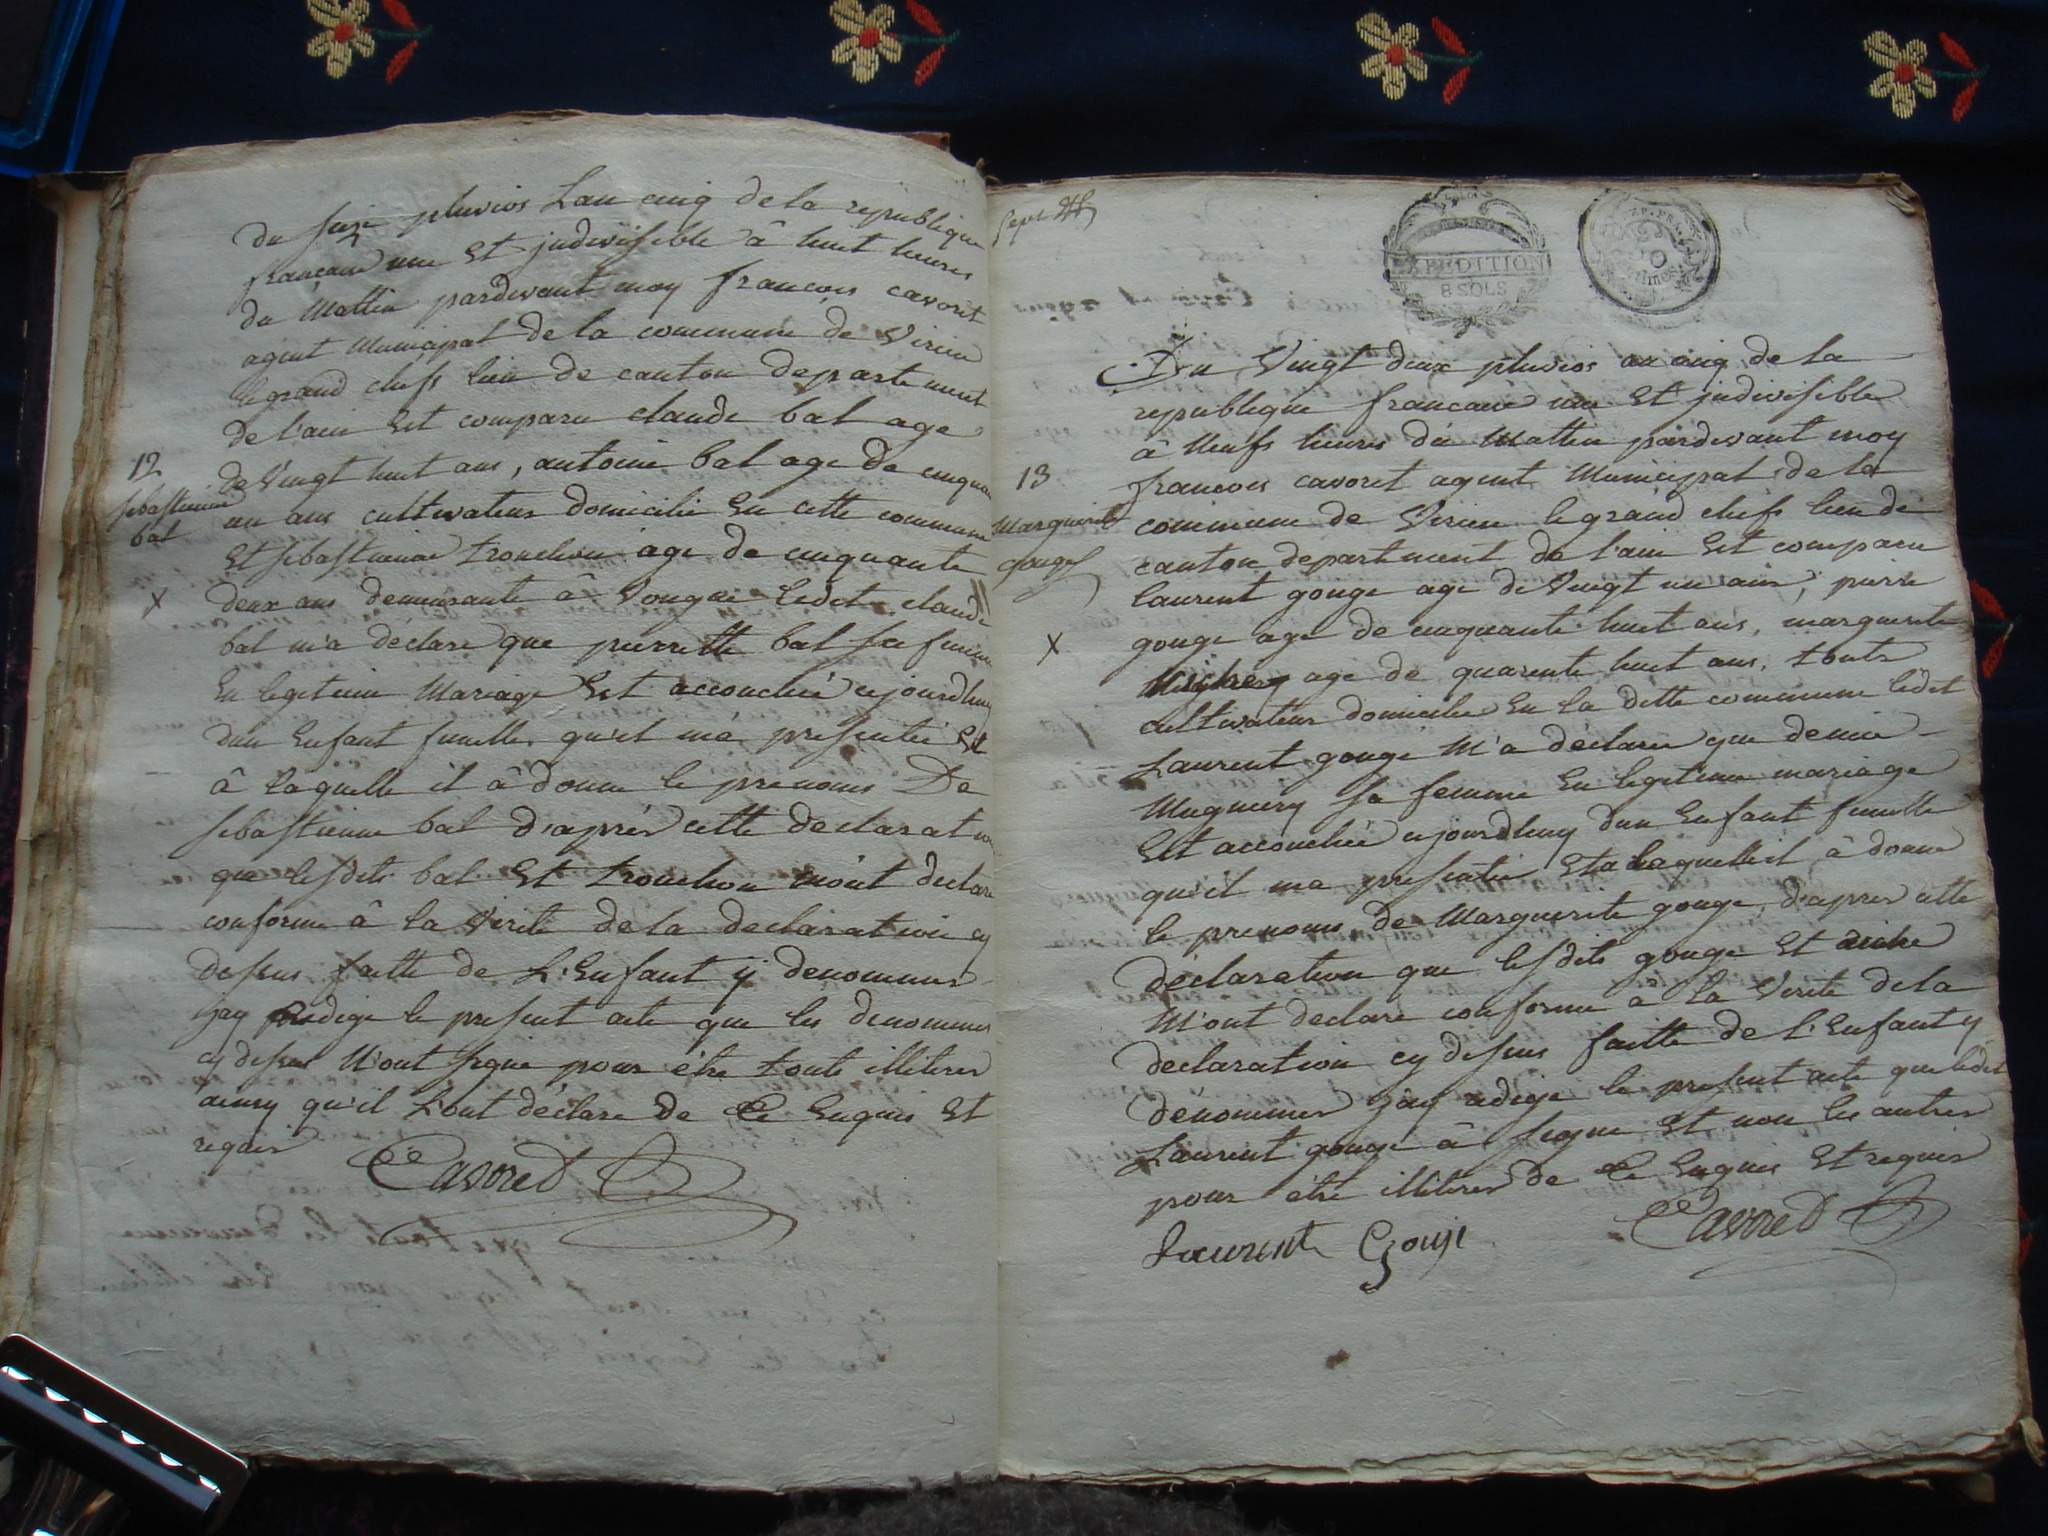 du seize pluvios Lan cinq de la republique
francaise une Et jndivisible â huit heures
du Mattin pardevant moy francois cavoret
agent Municipal de la commune de Virieu
le grand chefs lieu de canton departement
de l'ain Est comparu claude bal age
de Vingt huit ans, antoine bal age de cinquante
un ans cultivateurs domicilie En cette commune
Et sebastienne tronchon age de cinquante
deux ans demeurante â Vongne ledit claude
bal m'a déclare que pierrette bal sa femme
En legitime Mariage Est accouchée ajourdhuy
dun Enfant femelle qu'il m'a presentée Et
â laquelle il â donne le prenoms De
sebastienne bal d'aprés cette declaration
que lesdits bal Et tronchon m'ont declare
conforme â la Verite de la declaration cy
dessus faitte de L'Enfant ÿ denommer
jay redige le present acte que les denommes
cy dessus N'ont signe pour etre touts illiteres
ainsy qu'il L'ont déclare de Ce Enquis Et
requis
Cavoret
12
sebastienne
bal
X
Sept
EXPEDITION
8 SOLS
Du Vingt deux pluvios an cinq de la
republique francaise une Et jndivisible
â Neufs heures du Mattin pardevant moy
francois cavoret agent Municipal de la
commune de Virieu le grand chefs lieu de
canton departement de l'ain Est comparu
laurent gouge age de Vingt un ans, pierre
gouge age de cinquante huit ans, marguerite
age de quarente huit ans, touts
cultivateurs domicilie En la ditte commune ledit
Laurent gouge M'a déclare que
Mugnery sa femme En legitime mariage
Est accouchée ajourdhuy dun Enfant femelle
qu'il ma presentée Et a laquelle il â donne
le prenoms de Marguerite gouge, d'apres cette
déclaration que lesdits gouge Et
M'ont declare conforme a la Verite de la
declaration cy dessus faitte de l'Enfant y
denommer jay redige le present acte que ledit
Laurent gouge â signe Et non les autres
pour étre illiteres de Ce Enquis Et requis
Laurent Gouje Cavoret
13
Marguerite
gouge
X